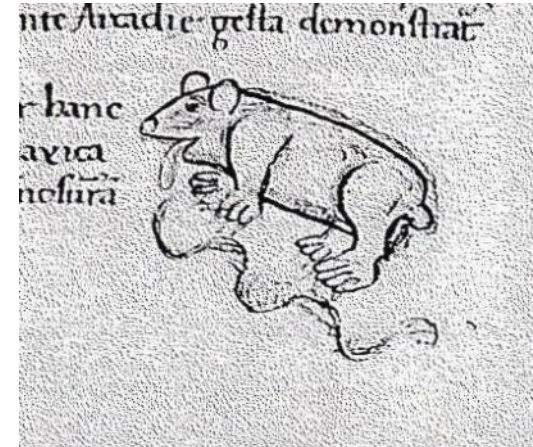 nte Arcadie gesta demonstrat
r hanc
axica
nosura